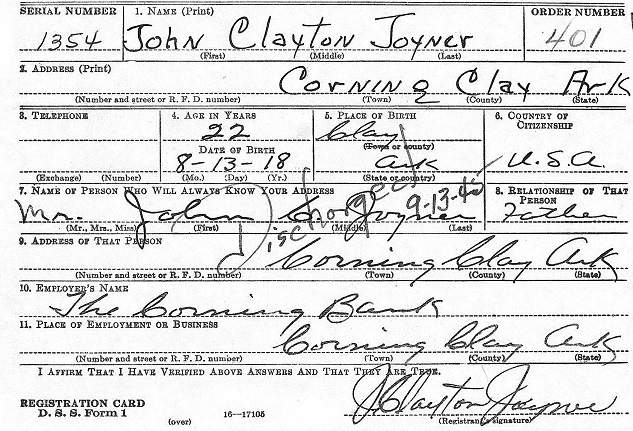 SERIAL NUMBER 1. NAME (Print) ORDER NUMBER
1354 John Clayton Joyner 401
(First) (Middle) (Last)
2. ADDRESS (Print)
Corning Clay Ark
(Number and street or R. F. D. number) (Town) (County) (State)
3. TELEPHONE 4. AGE IN YEARS 5. PLACE OF BIRTH 6. COUNTRY OF CITIZENSHIP
22 Clay
DATE OF BIRTH (Town or county)
8-13-18 Ark U.S.A.
(Exchange) (Number) (Mo.) (Day) (Yr.) (State or country)
7. NAME OF PERSON WHO WILL ALWAYS KNOW YOUR ADDRESS 8. RELATIONSHIP OF THAT PERSON
Mr. John C. Joyner Father
(Mr., Mrs., Miss) (First) (Middle) (Last)
Discharged 9-13-45
9. ADDRESS OF THAT PERSON
Corning Clay Ark
(Number and street or R. F. D. number) (Town) (County) (State)
10. EMPLOYER'S NAME
The Corning Bank
11. PLACE OF EMPLOYMENT OR BUSINESS
Corning Clay Ark
(Number and street or R. F. D. number) (Town) (County) (State)
I AFFIRM THAT I HAVE VERIFIED ABOVE ANSWERS AND THAT THEY ARE TRUE.
J. Clayton Joyner
REGISTRATION CARD
D. S. S. Form 1 (over) 16—17105 (Registrant's signature)